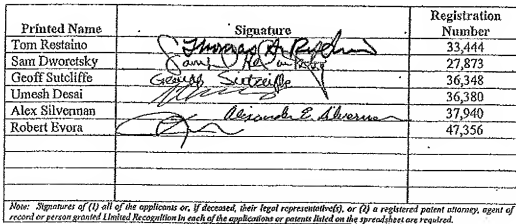 Printed Name Signature Registration Number
Tom Restaino Thomas A. 33,444
Sam Dworetsky 27,873
Geoff Sutcliffe Sutcliffe 36,348
Umesh Desai 36,380
Alex Silverman Alexander E. Silverman 37,940
Robert Evora 47,356
Note: Signatures of (1) all of the applicants or, if deceased, their legal representative(s), or (2) a registered patent attorney, agent of
record or person granted Limited Recognition in each of the applications or patents listed on the spreadsheet are required.